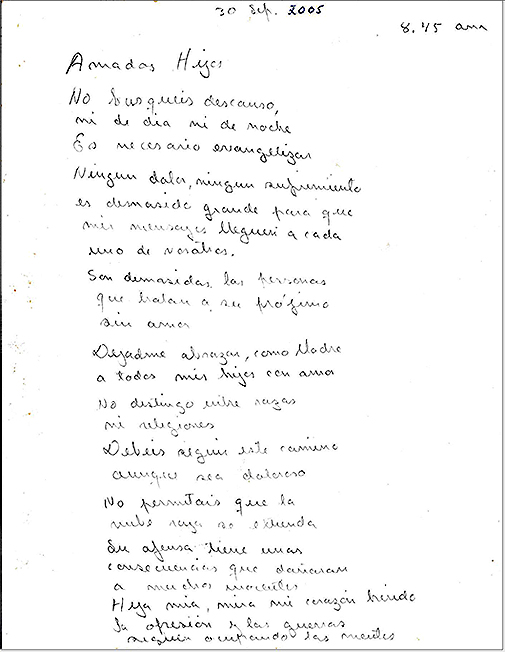 30 Sep. 2005
8.45 am
Amados Hijos
No busqueis descanso,
ni de dia ni de noche
Es necesario evangelizar
Ningun dolor, ningun sufrimiento
es demasiado grande para que
mis mensajes lleguen a cada
uno de vosotros.
Son demasiadas las personas
que tratan a su prójimo
sin amor
Dejadme abrazar, como Madre
a todos mis hijos con amor
No distingo entre razas
ni religiones
Debeis seguir este camino
aunque sea doloroso
No permitais que la
nube roja se extienda
Su ofensa tiene unas
consecuencias que dañaran
a muchos inocentes
Hija mia, mira mi corazón herido
la opresión y las guerras
seguir ocupando las mentes